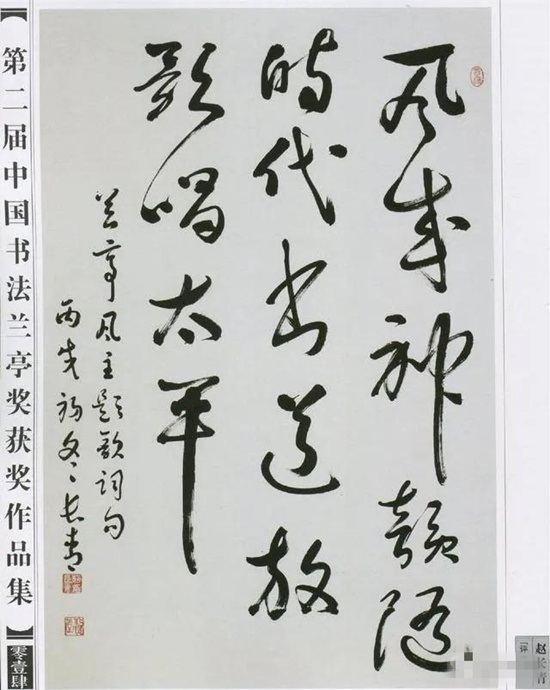 风成神韵随
时代书道放
歌唱太平
兰亭风主题歌词句
丙戌初冬长青
第二届中国书法兰亭奖获奖作品集
零壹肆
赵长青